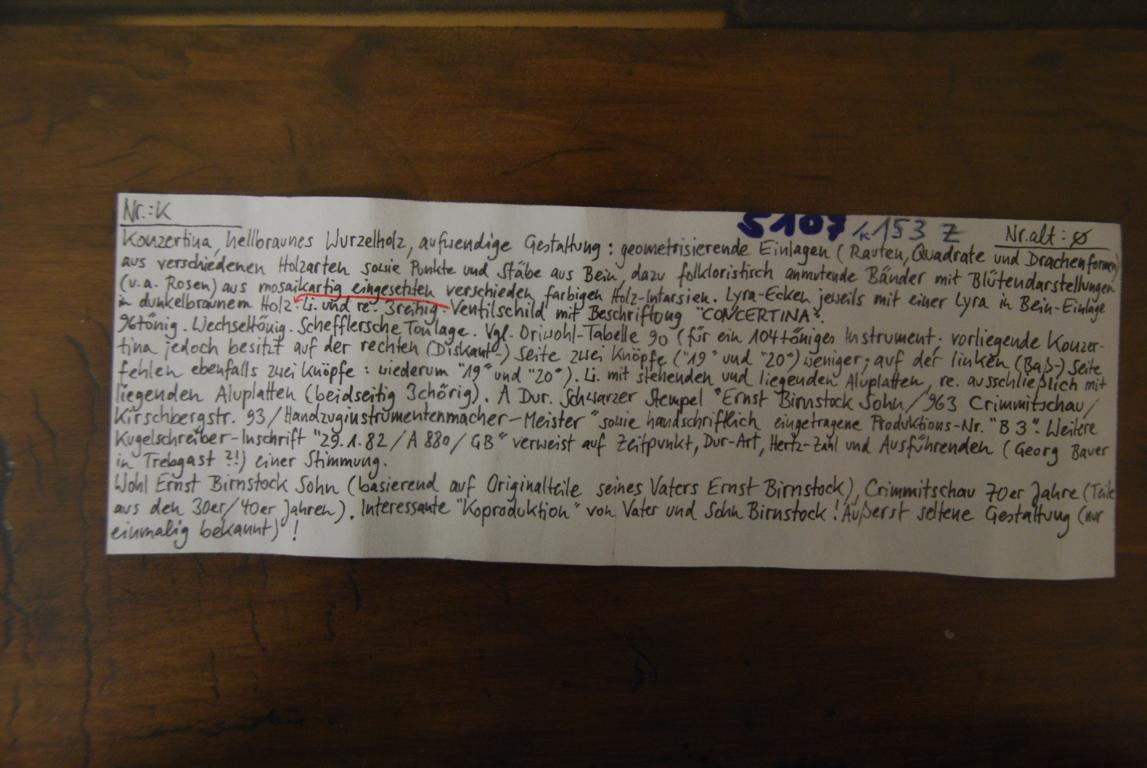 Nr.: K
5107 K153 Z Nr. alt: ø
Konzertina, hellbraunes Wurzelholz, aufwendige Gestaltung: geometrisierende Einlagen (Rauten, Quadrate und Drachenformen)
aus verschiedenen Holzarten sowie Punkte und Stäbe aus Bein, dazu folkloristisch anmutende Bänder mit Blütendarstellungen
(u.a. Rosen) aus mosaikartig eingesetzten verschieden farbigen Holz-Intarsien. Lyra-Ecken jeweils mit einer Lyra in Bein-Einlage
in dunkelbraunem Holz. Li. und re. 3reihig. Ventilschild mit Beschriftung "CONCERTINA".
96tönig. Wechseltönig. Schefflersche Tonlage. Vgl. Oriwohl-Tabelle 90 (für ein 104töniges Instrument; vorliegende Konzer-
tina jedoch besitzt auf der rechten (Diskant-) Seite zwei Knöpfe ("19" und "20") weniger; auf der linken (Baß-) Seite
fehlen ebenfalls zwei Knöpfe: wiederum "19" und "20"). Li. mit stehenden und liegenden Aluplatten, re. ausschließlich mit
liegenden Aluplatten (beidseitig 3chörig). A Dur. Schwarzer Stempel "Ernst Birnstock Sohn/963 Crimmitschau/
Kirschbergstr. 93/Handzuginstrumentenmacher-Meister" sowie handschriftlich eingetragene Produktions-Nr. "B 3". Weitere
Kugelschreiber-Inschrift "29.1.82/A 880/GB" verweist auf Zeitpunkt, Dur-Art, Hertz-Zahl und Ausführenden (Georg Bauer
in Trebgast ?!) einer Stimmung.
Wohl Ernst Birnstock Sohn (basierend auf Originalteile seines Vaters Ernst Birnstock), Crimmitschau 70er Jahre (Teile
aus den 30er/40er Jahren). Interessante "Koproduktion" von Vater und Sohn Birnstock! Äußerst seltene Gestaltung (nur
einmalig bekannt)!